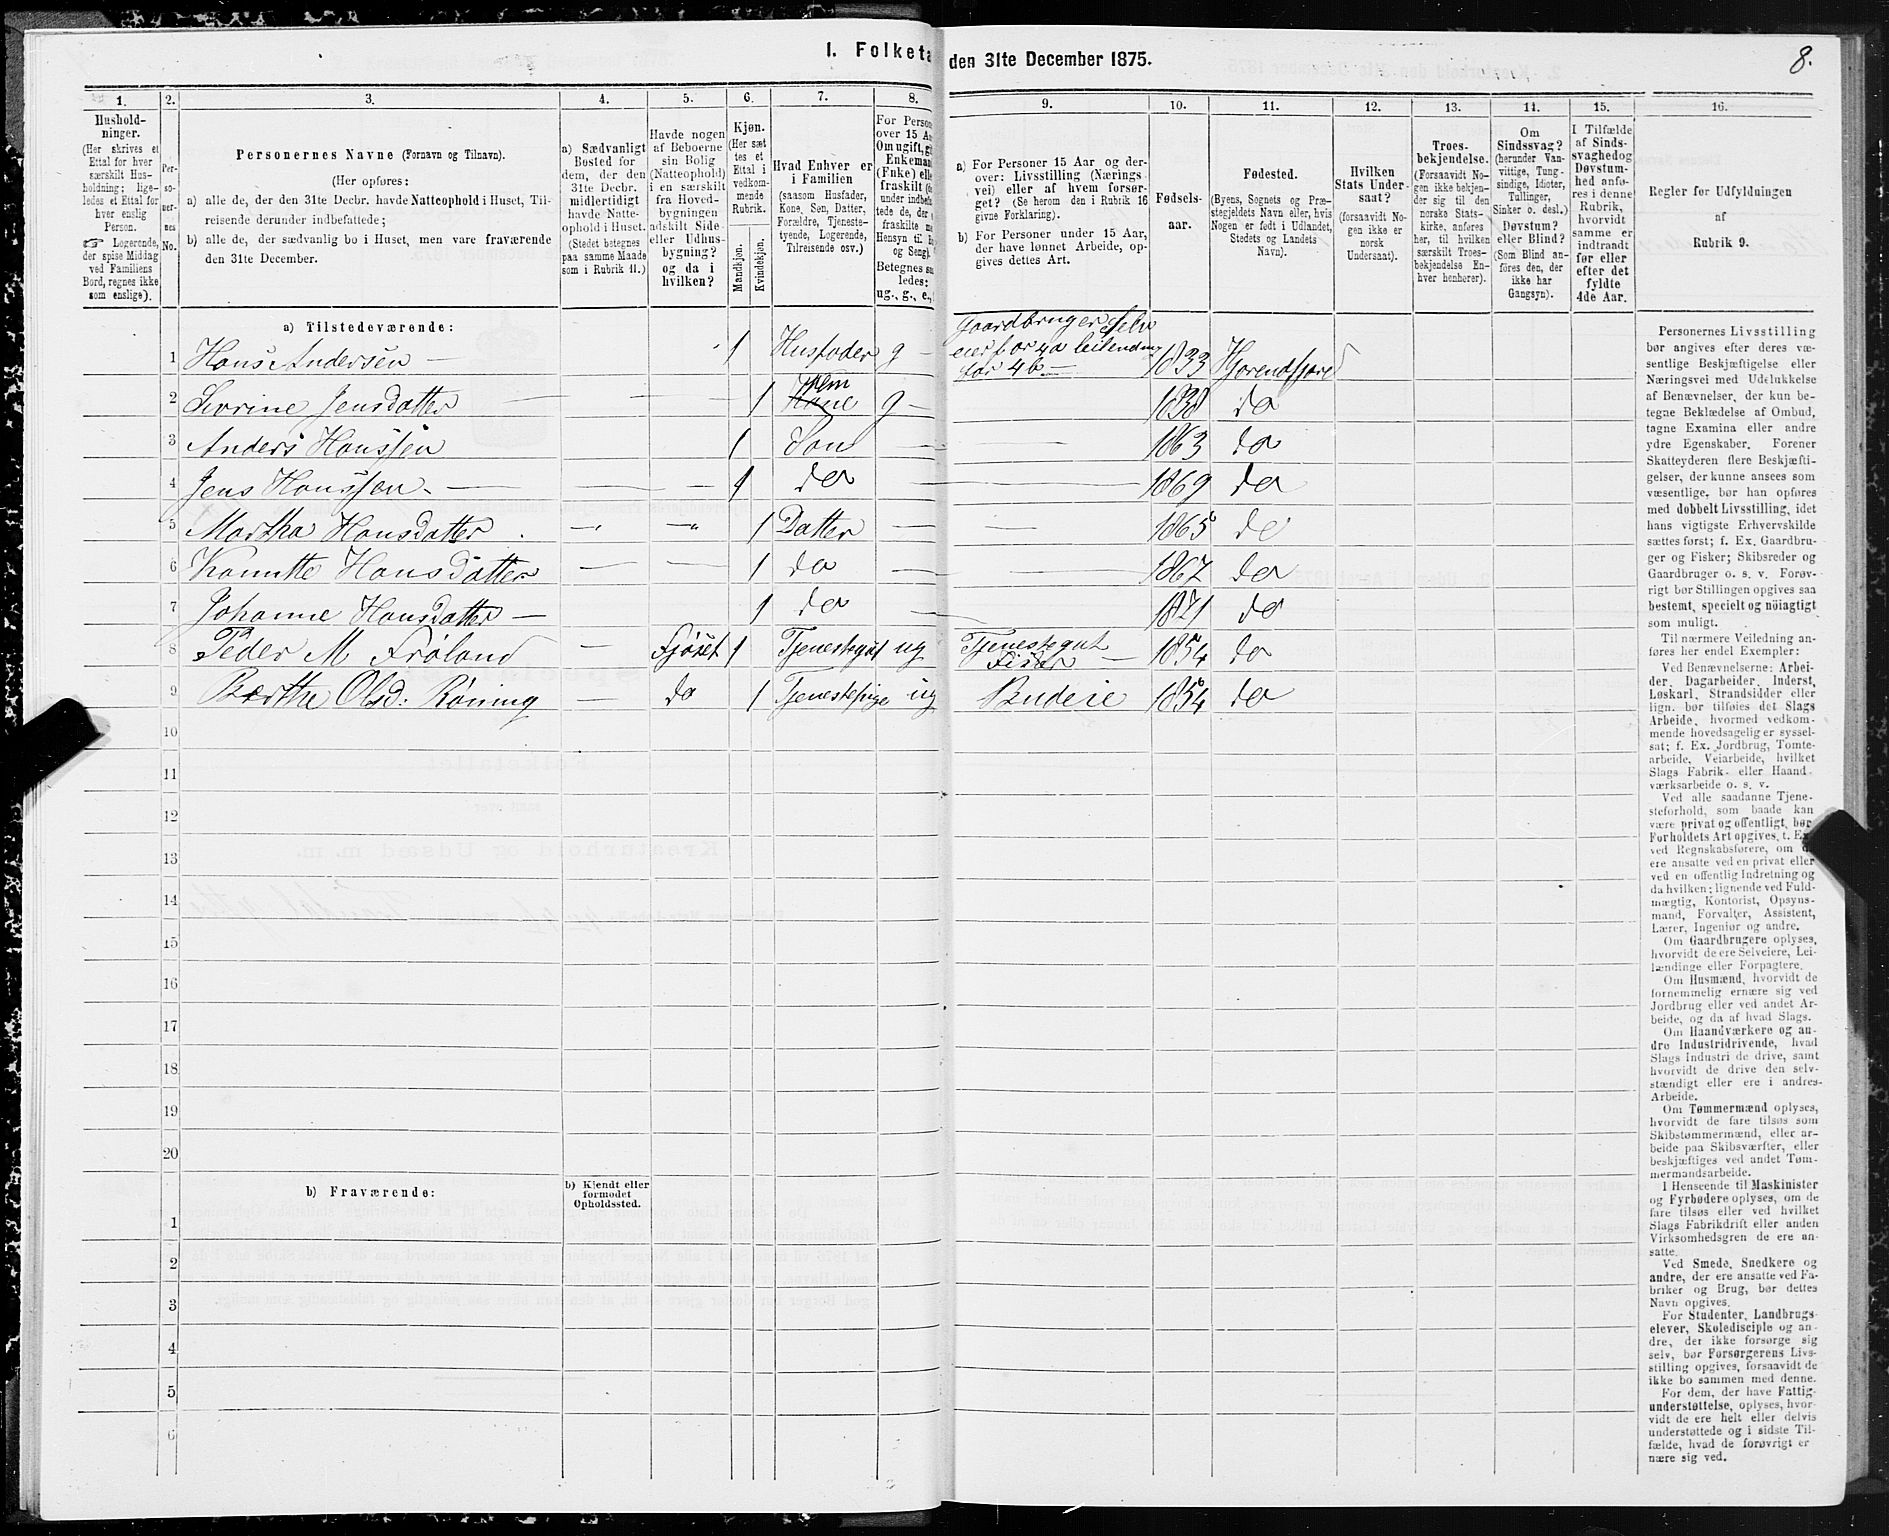 I. Folketa den 31te December 1875.
8.
1.
Hushold-
ninger.
(Her skrives et
Ettal for hver
særskilt Hus-
holdning; lige-
ledes et Ettal for
hver enslig
Person.
☞ Logerende,
der spise Middag
ved Familiens
Bord, regnes ikke
som enslige).
2.
Per-
so-
ner-
nes
No.
3.
Personernes Navne (Fornavn og Tilnavn).
(Her opføres:
a) alle de, der den 31te Decbr. havde Natteophold i Huset, Til-
reisende derunder indbefattede;
b) alle de, der sædvanlig bo i Huset, men vare fraværende
den 31te December.
4.
a) Sædvanligt
Bosted for
dem, der den
31te Decbr.
midlertidigt
havde Natte-
ophold i Huset.
(Stedet betegnes
paa samme Maade
som i Rubrik 11.)
5.
Havde nogen
af Beboerne
sin Bolig
(Natteophold)
i en særskilt
fra Hoved-
bygningen
adskilt Side-
eller Udhus-
bygning?
og da i
hvilken?
6.
Kjøn.
(Her sæt-
tes et
Ettal i
vedkom-
mende
Rubrik.
Mandkjøn.
Kvindekjøn.
7.
Hvad Enhver er
i Familien
(saasom Husfader,
Kone, Søn, Datter,
Forældre, Tjeneste-
tyende, Logerende,
Tilreisende osv.)
8.
For Persone
over 15 Aa
Om ugift, gi
Enkeman
(Enke) elle
fraskilt (de
under indbefa
tede de, der e
fraskilte me
Hensyn til B
og Seng).
Betegnes sa
ledes:
ug., g., e.,
9.
a) For Personer 15 Aar og der-
over: Livsstilling (Nærings
vei) eller af hvem forsør-
get? (Se herom den i Rubrik 16
givne Forklaring).
b) For Personer under 15 Aar,
der have lønnet Arbeide, op-
gives dettes Art.
10.
Fødsels-
aar.
11.
Fødested.
(Byens, Sognets og Præ-
stegjeldets Navn eller, hvis
Nogen er født i Udlandet,
Stedets og Landets
Navn).
12.
Hvilken
Stats Under-
saat?
(forsaavidt No-
gen ikke er
norsk
Undersaat).
13.
Troes-
bekjendelse.
(Forsaavidt No-
gen ikke bekjen-
der sig til den
norske Stats-
kirke, anføres
her, til hvilken
særskilt Troes-
bekjendelse En-
hver henhører).
14.
Om
Sindssvag?
(herunder Van-
vittige, Tung-
sindige, Idioter,
Tullinger,
Sinker o. desl.)
Døvstum?
eller Blind?
(Som Blind an-
føres den, der
ikke har
Gangsyn).
15.
I Tilfælde
af Sinds-
svaghedog
Døvstum-
hed anfø-
res i denne
Rubrik,
hvorvidt
samme er
indtraadt
før eller
efter det
fyldte
4de Aar.
16.
Regler før Udfyldningen
af
Rubrik 9.
a) Tilstedeværende:
1 Hans Andersen — 1 Husfader g — Gaardbruger Selv
eier for 4a leilending
for 4b — 1833 Hjorendfjord
2 Sivrine Jensdatter — 1 Kone g — 1838 do
3 Anders Hanssen 1 Søn — 1863 do
4 Jens Hanssen — 1 do — 1869 do
5 Martha Hansdatter — 1 Datter — 1865 do
6 Hansdatter — 1 do — 1867 do
7 Johanne Hansdatter — 1 do — 1871 do
8 Peder M Frøland Fjøset 1 Tjenestegut ug Tjenestegut
Fisker — 1854 do
9 Berthe Olsd: Røning — do 1 Tjenestepige ug Budeie 1854 do
10
11
12
13
14
15
16
17
18
19
20
b) Fraværende:
b) Kjendt eller
formodet
Opholdssted.
1
2
3
4
5
6
Personernes Livsstilling
bør angives efter deres væ-
sentlige Beskjæftigelse eller
Næringsvei med Udelukkelse
af Benævnelser, der kun be-
tegne Beklædelse af Ombud,
tagne Examina eller andre
ydre Egenskaber. Forener
Skatteyderen flere Beskjæfti-
gelser, der kunne ansees som
væsentlige, bør han opføres
med dobbelt Livsstilling, idet
hans vigtigste Erhvervskilde
sættes først; f. Ex. Gaardbru-
ger og Fisker; Skibsreder og
Gaardbruger o. s. v. Forøv-
rigt bør Stillingen opgives saa
bestemt, specielt og nöiagtigt
som muligt.
Til nærmere Veiledning an-
føres her endel Exempler:
Ved Benævnelserne: Arbei-
der, Dagarbeider, Inderst,
Løskarl, Strandsidder eller
lign. bør tilføies det Slags
Arbeide, hvormed vedkom-
mende hovedsagelig er syssel-
sat; f. Ex. Jordbrug, Tomte-
arbeide, Veiarbeide, hvilket
Slags Fabrik- eller Haand-
værksarbeide o. s. v.
Ved alle saadanne Tjene-
steforhold, som baade kan
være privat og offentligt, bør
Forholdets Art opgives, t. Ex.
ved Regnskabsførere, om de
ere ansatte ved en privat eller
ved en offentlig Indretning og
da hvilken; lignende ved Fuld-
mægtig, Kontorist, Opsyns-
mand, Forvalter, Assistent,
Lærer, Ingeniør og andre.
Om Gaardbrugere oplyses,
hvorvidt de ere Selveiere, Lei-
lændinge eller Forpagtere.
Om Husmænd, hvorvidt de
fornemmelig ernære sig ved
Jordbrug eller ved andet Ar-
beide, og da af hvad Slags.
Om Haandværkere og an-
dre Industridrivende, hvad
Slags Industri de drive, samt
hvorvidt de drive den selv-
stændigt eller ere i andres
Arbeide.
Om Tømmermænd oplyses,
hvorvidt de fare tilsøs som
Skibstømmermænd, eller ar-
beide paa Skibsværfter, eller
beskjæftiges ved andet Tøm-
mermandsarbeide.
I Henseende til Maskinister
og Fyrbødere oplyses, om de
fare tilsøs eller ved hvilket
Slags Fabrikdrift eller anden
Virksomhedsgren de ere an-
satte.
Ved Smede, Snedkere og
andre, der ere ansatte ved Fa-
briker og Brug, bør dettes
Navn opgives.
For Studenter, Landbrugs-
elever, Skoledisciple og an-
dre, der ikke forsørge sig
selv, bør Forsørgerens Livs-
stilling opgives, forsaavidt de
ikke bo sammen med denne.
For dem, der have Fattig-
understøttelse, oplyses, hvor-
vidt de ere helt eller delvis
understøttede og i sidste Til-
fælde, hvad de forøvrigt er
nære sig ved.